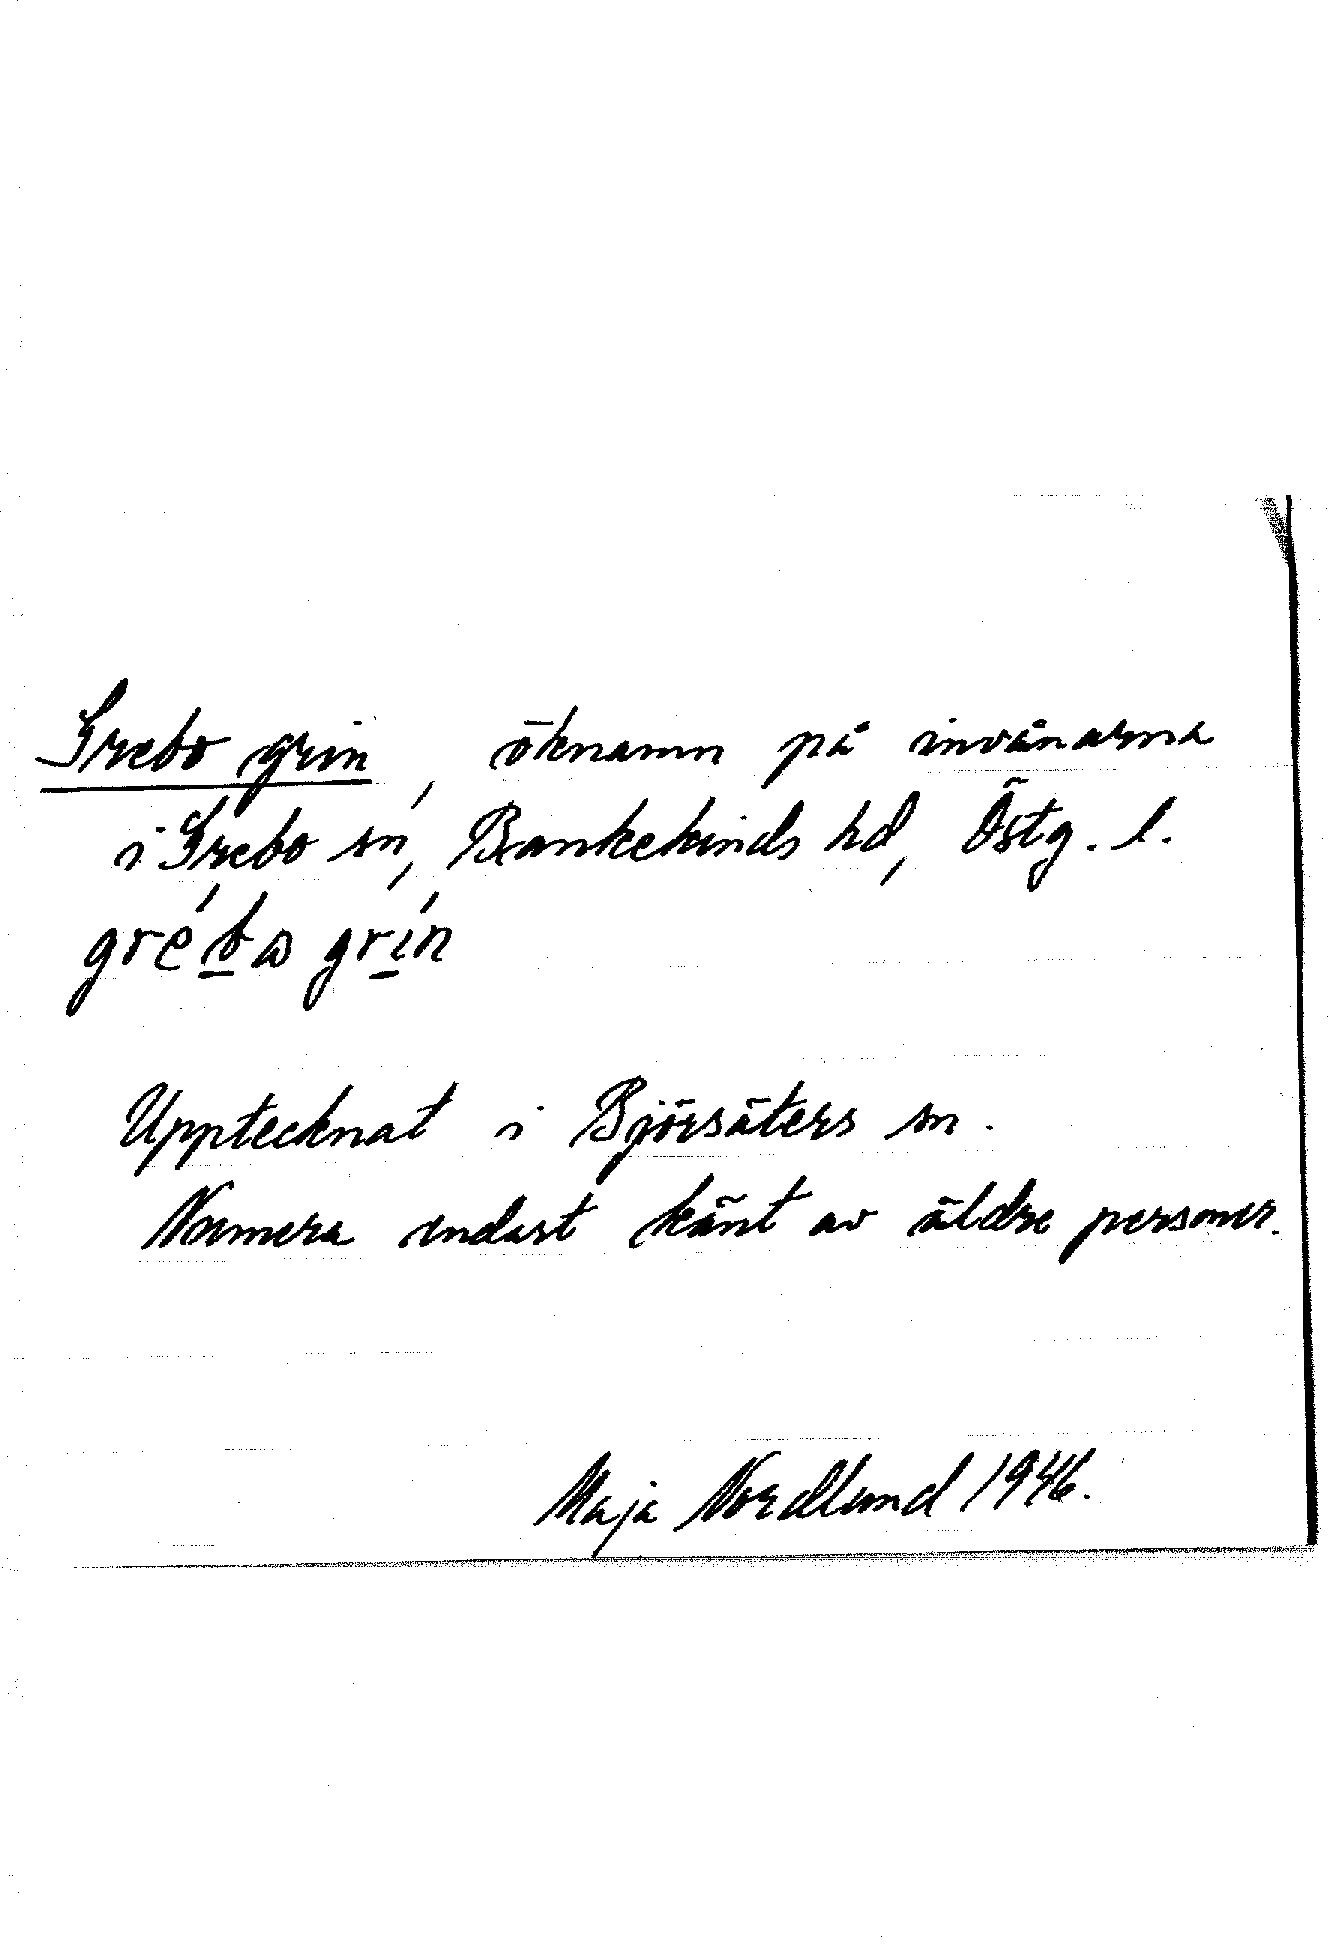 Grebo grin, öknamn på invånarna
i Grebo sn, Bankekinds hd, Östg. l.
grébɷ grín
Upptecknat i Björsäters sn.
Numera endast känt av äldre personer.
Maja Nordlund 1946.